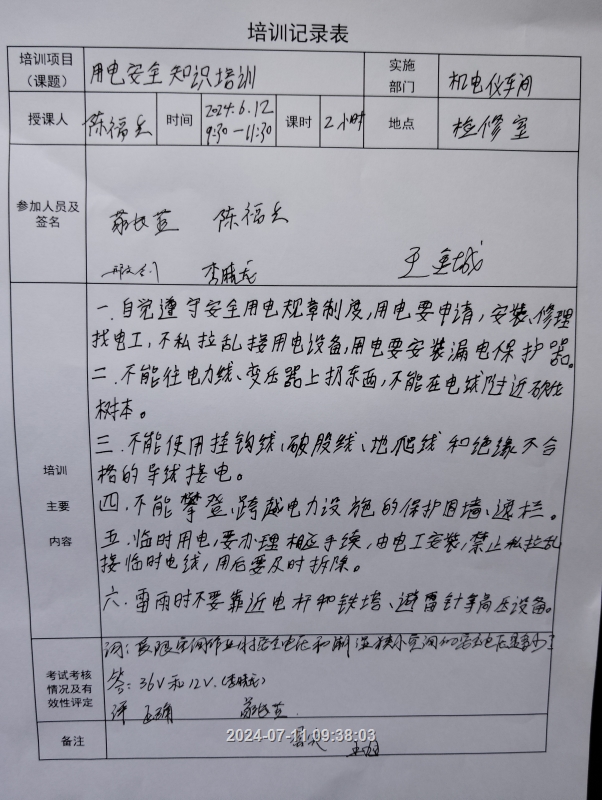 培训记录表
培训项目
（课题）
用电安全知识培训
实施
部门
机电仪车间
授课人
陈福兵
时间
2024.6.12
9:30—11:30
课时
2小时
地点
检修室
参加人员及
签名
陈福兵
李晓龙
王金城
培训
主要
内容
一.自觉遵守安全用电规章制度,用电要申请,安装、修理
找电工,不私拉乱接用电设备,用电要安装漏电保护器。
二.不能往电力线、变压器上扔东西,不能在电线附近砍伐
树木。
三.不能使用挂钩线、破股线、地爬线和绝缘不合
格的导线接电。
四.不能攀登、跨越电力设施的保护围墙、遮栏。
五.临时用电,要办理相应手续,由电工安装,禁止私拉乱
接临时电线,用后要及时拆除。
六.雷雨时不要靠近电杆和铁塔、避雷针等高压设备。
考试考核
情况及有
效性评定
问:有限空间作业时安全电压和潮湿狭小空间的安全电压是多少?
答:36V和12V.(李晓龙)
评 正确
备注
2024-07-11 09:38:03